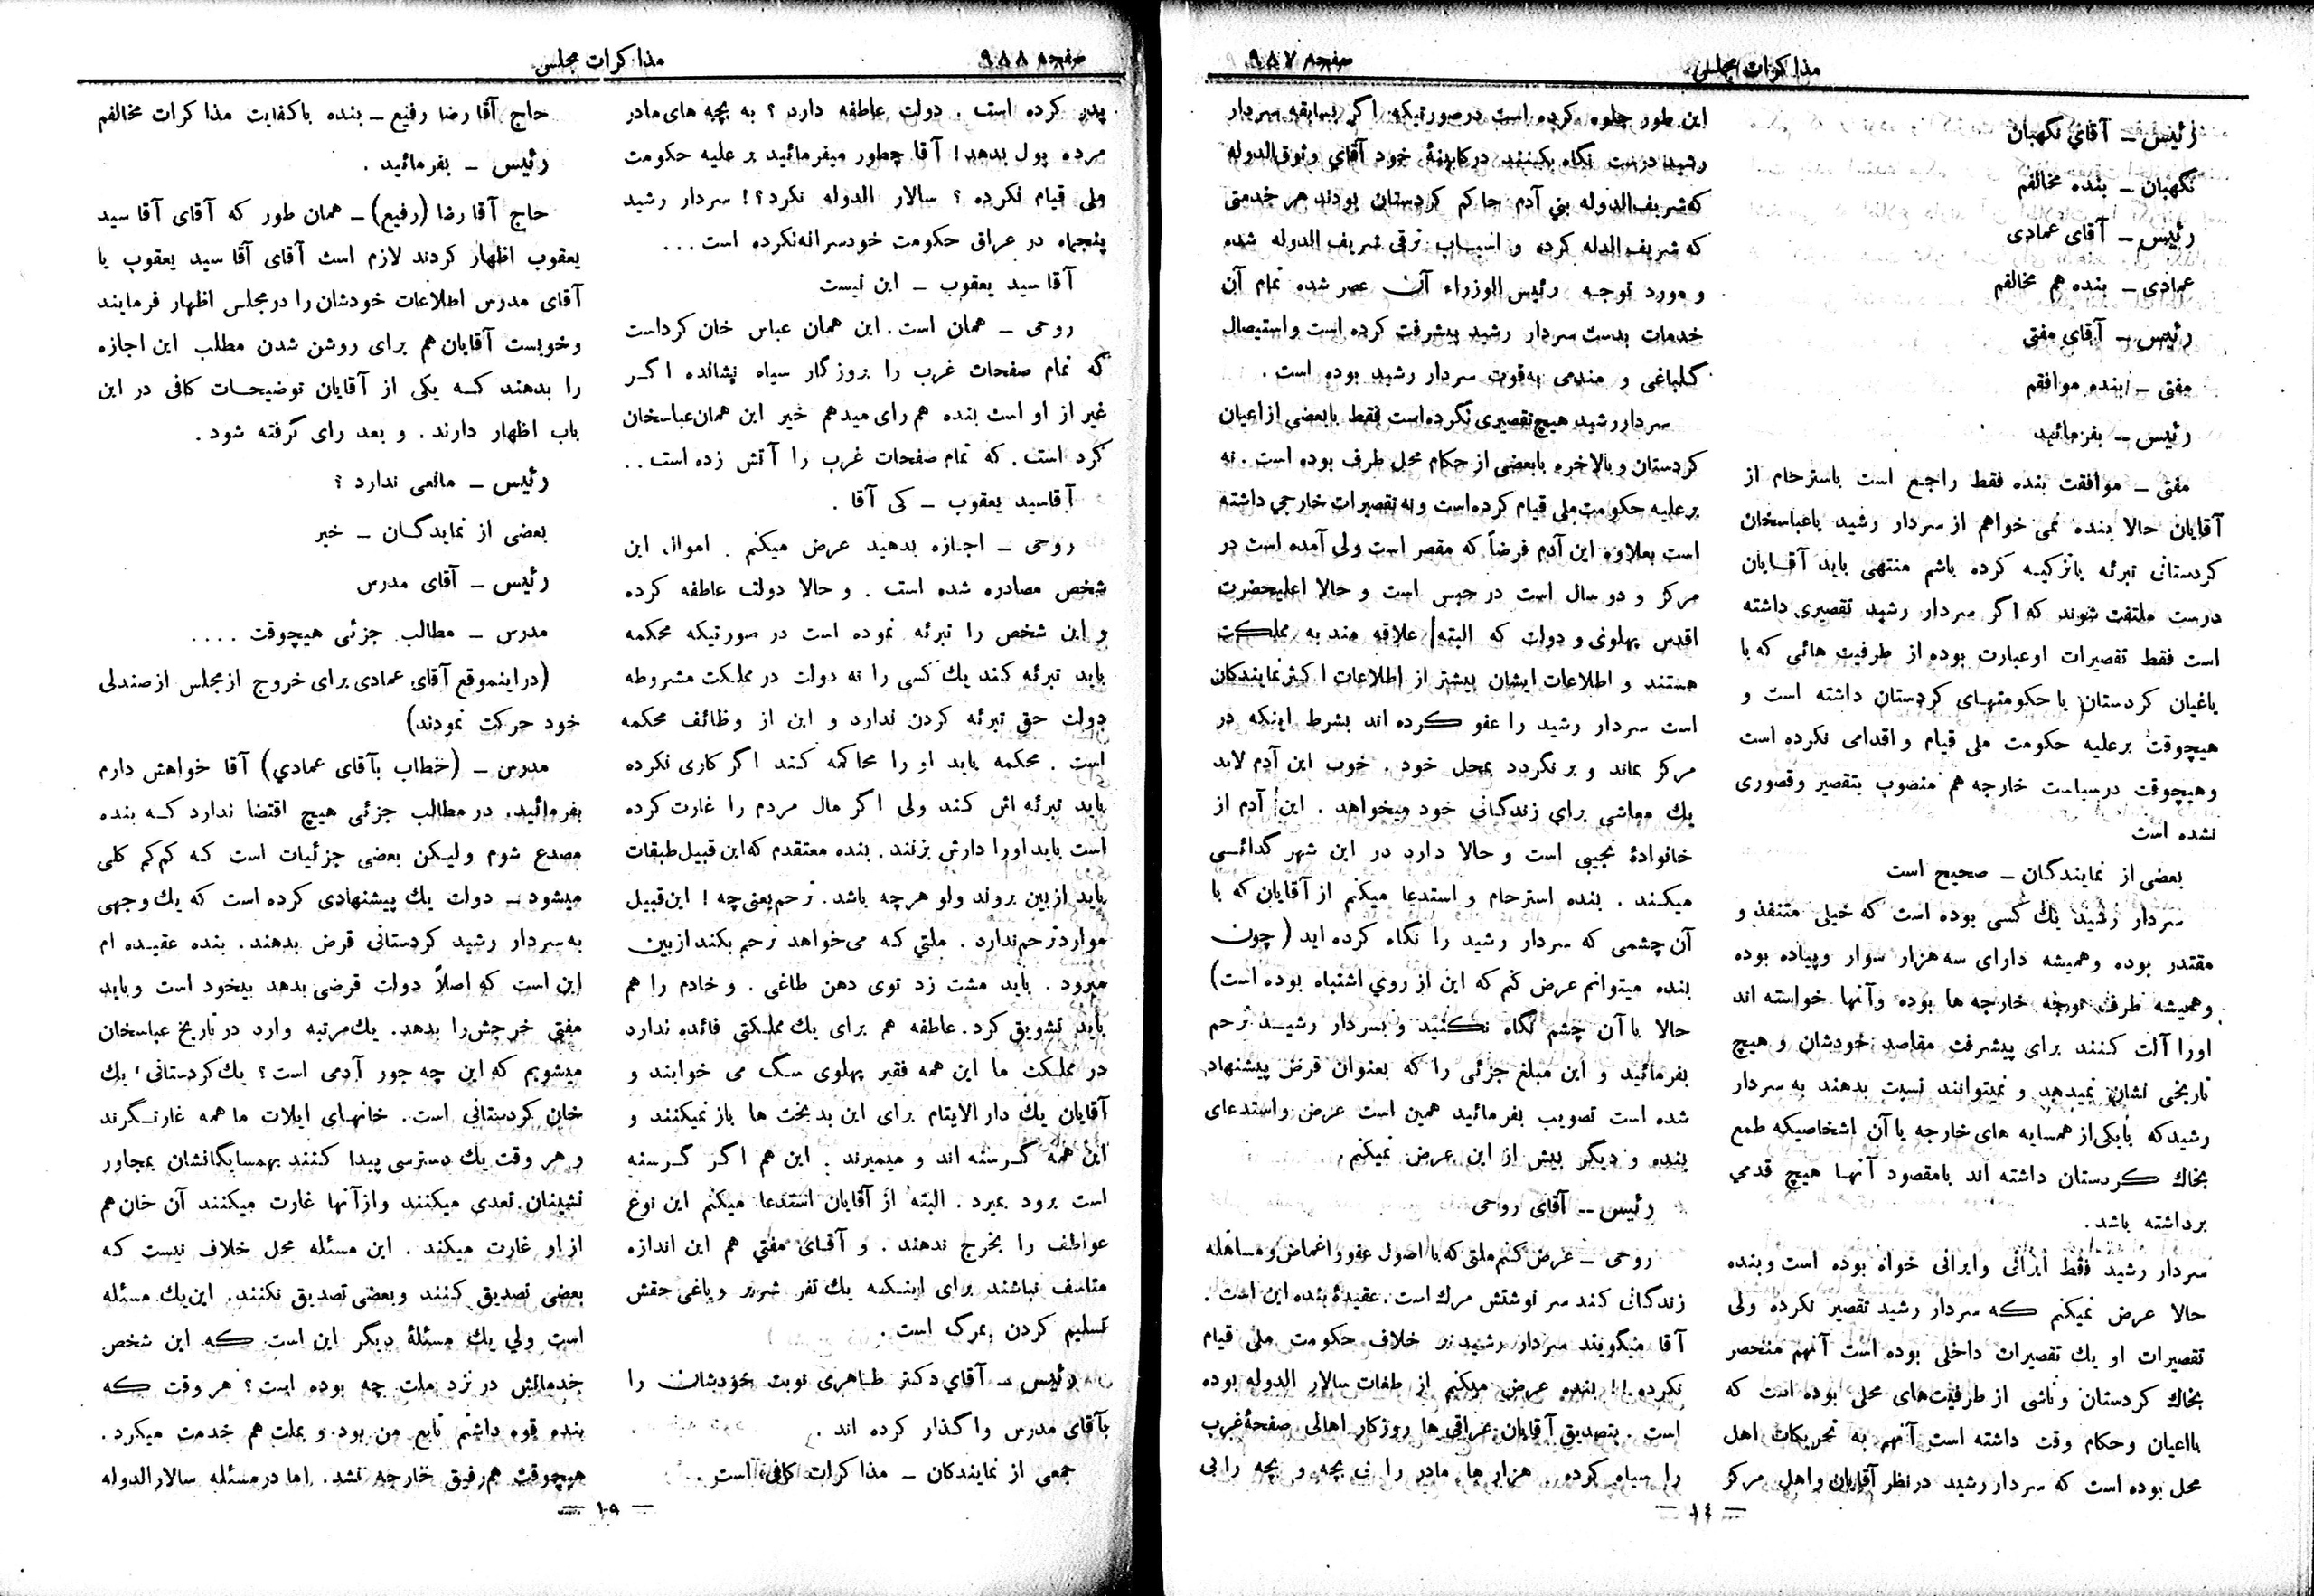 مذاکرات مجلس
صفحه ۹۸۷
رئیس ــ آقاي نگهبان
نگهبان ــ بنده مخالفم
رئیس ــ آقای عمادی
عمادی ــ بنده هم مخالفم
رئیس ــ آقاي مفتی
مفتی ــ بنده موافقم
رئیس ــ بفرمائید
مفتی ــ موافقت بنده فقط راجع است باسترحام از
آقایان حالا بنده نمی خواهم از سردار رشید یاعباسخان
کردستانی تبرئه یاتزکیه کرده باشم منتهی باید آقایان
درست ملتفت شوند که اگر سردار رشید تقصیری داشته
است فقط تقصیرات اوعبارت بوده از طرفیت هائی که با
یاغیان کردستان یا حکومتهای کردستان داشته است و
هیچوقت برعلیه حکومت ملی قیام و اقدامی نکرده است
وهیچوقت درسیاست خارجه هم منصوب بتقصیر وقصوری
نشده است
بعضی از نمایندگان ــ صحیح است
سردار رشید یك کسی بوده است که خیلی متنفذ و
مقتدر بوده وهمیشه دارای سه هزار سوار وپیاده بوده
وهمیشه طرف توجه خارجه ها بوده وآنها خواسته اند
اورا آلت کنند برای پیشرفت مقاصد خودشان و هیچ
تاریخی نشان نمیدهد و نمیتوانند نسبت بدهند به سردار
رشیدکه بایکی از همسایه های خارجه یا آن اشخاصیکه طمع
بخاك کردستان داشته اند بامقصود آنها هیچ قدمي
برداشته باشد.
سردار رشید فقط ایرانی وایرانی خواه بوده است وبنده
حالا عرض نمیکنم که سردار رشید تقصیر نکرده ولی
تقصیرات او یك تقصیرات داخلی بوده است آنهم منحصر
بخاك کردستان وناشی از طرفیت‌های محلی بوده است که
بااعیان وحکام وقت داشته است آنهم به تحریکات اهل
محل بوده است که سردار رشید درنظر آقایان واهل مرکز
این طور جلوه کرده است درصورتیکه اگر بسابقه سردار
رشید درست نگاه بکنند درکابینهٔ خود آقاي وثوق‌الدوله
که شریف‌الدوله بني آدم حاکم کردستان بودند هر خدمتی
که شریف الدله کرده و اسباب ترقی شریف الدوله شده
و مورد توجه رئیس الوزراء آن عصر شده تمام آن
خدمات بدست سردار رشید پیشرفت کرده است واستیصال
گلباغی و مندمی به‌قوت سردار رشید بوده است .
سرداررشید هیچ تقصیری نکرده‌است فقط بابعضی ازاعیان
کردستان و بالاخره بابعضی از حکام محل طرف بوده است . نه
برعلیه حکومت‌ملی قیام کرده‌است ونه تقصیرات خارجي داشته
است بعلاوه این آدم فرضاً که مقصر است ولی آمده است در
مرکز و دو سال است در حبس است و حالا اعلیحضرت
اقدس پهلوی و دولت که البته علاقه مند به مملکت
هستند و اطلاعات ایشان بیشتر از اطلاعات اکثرنمایندگان
است سردار رشید را عفو کرده اند بشرط اینکه در
مرکز بماند و بر نگردد بمحل خود . خوب این آدم لابد
یك معاشی برای زندگانی خود میخواهد . این آدم از
خانوادهٔ نجیبی است و حالا دارد در این شهر گدائی
میکند . بنده استرحام و استدعا میکنم از آقایان که با
آن چشمی که سردار رشید را نگاه کرده اید ( چون
بنده میتوانم عرض کنم که این از روي اشتباه بوده است)
حالا با آن چشم نگاه نکنید و بسردار رشید ترحم
بفرمائید و این مبلغ جزئی را که بعنوان قرض پیشنهاد
شده است تصویب بفرمائید همین است عرض واستدعای
بنده و دیگر بیش از این عرض نمیکنم.
رئیس ــ آقای روحی
روحی ــ عرض کنم ملتی که با اصول عفو و اغماض ومساهله
زندگانی کند سر نوشتش مرك است. عقیدهٔ بنده این است .
آقا میگویند سردار رشید بر خلاف حکومت ملی قیام
نکرده !! بنده عرض میکنم از طغات سالار الدوله بوده
است . بتصدیق آقایان عراقی ها روزگار اهالی صفحهٔ غرب
را سیاه کرده . هزارها مادر را بی بچه و بچه را بی
— ١٤ —
مذاکرات مجلس
صفحه ۹۸۸
پدر کرده است . دولت عاطفه دارد ؟ به بچه های مادر
مرده پول بدهد! آقا چطور میفرمائید بر علیه حکومت
ملی قیام نکرده ؟ سالار الدوله نکرد؟! سردار رشید
پنجماه در عراق حکومت خودسرانه‌نکرده است...
آقا سید یعقوب ــ این نیست
روحی ــ همان است. این همان عباس خان کرداست
که تمام صفحات غرب را بروزگار سیاه نشانده اگر
غیر از او است بنده هم رای میدهم خیر این همان‌عباسخان
کرد است. که تمام صفحات غرب را آتش زده است..
آقاسید یعقوب ــ کی آقا .
روحی ــ اجازه بدهید عرض میکنم . اموال این
شخص مصادره شده است . و حالا دولت عاطفه کرده
و این شخص را تبرئه نموده است در صورتیکه محکمه
باید تبرئه کند یك کسی را نه دولت در مملکت مشروطه
دولت حق تبرئه کردن ندارد و این از وظائف محکمه
است . محکمه باید او را محاکمه کند اگر کاری نکرده
باید تبرئه اش کند ولی اگر مال مردم را غارت کرده
است باید اورا دارش بزنند. بنده معتقدم که این قبیل طبقات
باید از بین بروند ولو هرچه باشد. ترحم یعنی چه ! این قبیل
موارد ترحم ندارد . ملتي که می خواهد ترحم بکند ازبین
میرود . باید مشت زد توی دهن طاغی . و خادم را هم
باید تشویق کرد. عاطفه هم برای یك مملکتی فائده ندارد
در مملکت ما این همه فقیر پهلوی سگ می خوابند و
آقایان یك دار الایتام برای این بدبخت ها باز نمیکنند و
این همه گرسنه اند و میمیرند . این هم اگر گرسنه
است برود بمیرد . البته از آقایان استدعا میکنم این نوع
عواطف را بخرج ندهند . و آقای مفتي هم این اندازه
متاسف نباشند برای اینکه یك نفر شریر و یاغی حقش
تسلیم کردن بمرگ است .
رئیس ــ آقاي دکتر طاهری نوبت خودشان را
بآقای مدرس واگذار کرده اند .
جمعی از نمایندگان ــ مذاکرات کافی است .
حاج آقا رضا رفیع ــ بنده باکفایت مذاکرات مخالفم
رئیس ــ بفرمائید .
حاج آقا رضا (رفیع) ــ همان طور که آقای آقا سید
یعقوب اظهار کردند لازم است آقای آقا سید یعقوب یا
آقای مدرس اطلاعات خودشان را درمجلس اظهار فرمایند
وخوبست آقایان هم برای روشن شدن مطلب این اجازه
را بدهند که یکی از آقایان توضیحات کافی در این
باب اظهار دارند. و بعد رای گرفته شود.
رئیس ــ مانعی ندارد ؟
بعضی از نمایدگان ــ خیر
رئیس ــ آقای مدرس
مدرس ــ مطالب جزئی هیچوقت ....
(دراینموقع آقای عمادی برای خروج ازمجلس از صندلی
خود حرکت نمودند)
مدرس ــ (خطاب بآقای عمادي) آقا خواهش دارم
بفرمائید. در مطالب جزئی هیچ اقتضا ندارد که بنده
مصدع شوم ولیکن بعضی جزئیات است که کم کم کلی
میشود ــ دولت یك پیشنهادی کرده است که یك وجهی
به‌سردار رشید کردستانی قرض بدهند. بنده عقیده ام
این است که اصلاً دولت قرضی بدهد بیخود است وباید
مفتی خرجش را بدهد. یك‌مرتبه وارد در تاریخ عباسخان
میشویم که این چه جور آدمی است ؟ یك کردستانی، یك
خان کردستانی است. خانهای ایلات ما همه غارتگرند
و هر وقت یك دسترسی پیدا کنند بهمسایگانشان بمجاور
نشینان تعدی میکنند وازآنها غارت میکنند آن خان هم
از او غارت میکند . این مسئله محل خلاف نیست که
بعضی تصدیق کنند وبعضی تصدیق نکنند. این یك مسئله
است ولي یك مسئلهٔ دیگر این است که این شخص
خدماتش در نزد ملت چه بوده است؟ هر وقت که
بنده قوه داشتم تابع من بود و بملت هم خدمت میکرد.
هیچوقت هم رفیق خارجه نشد. اما درمسئله سالارالدوله
— ١٥ —